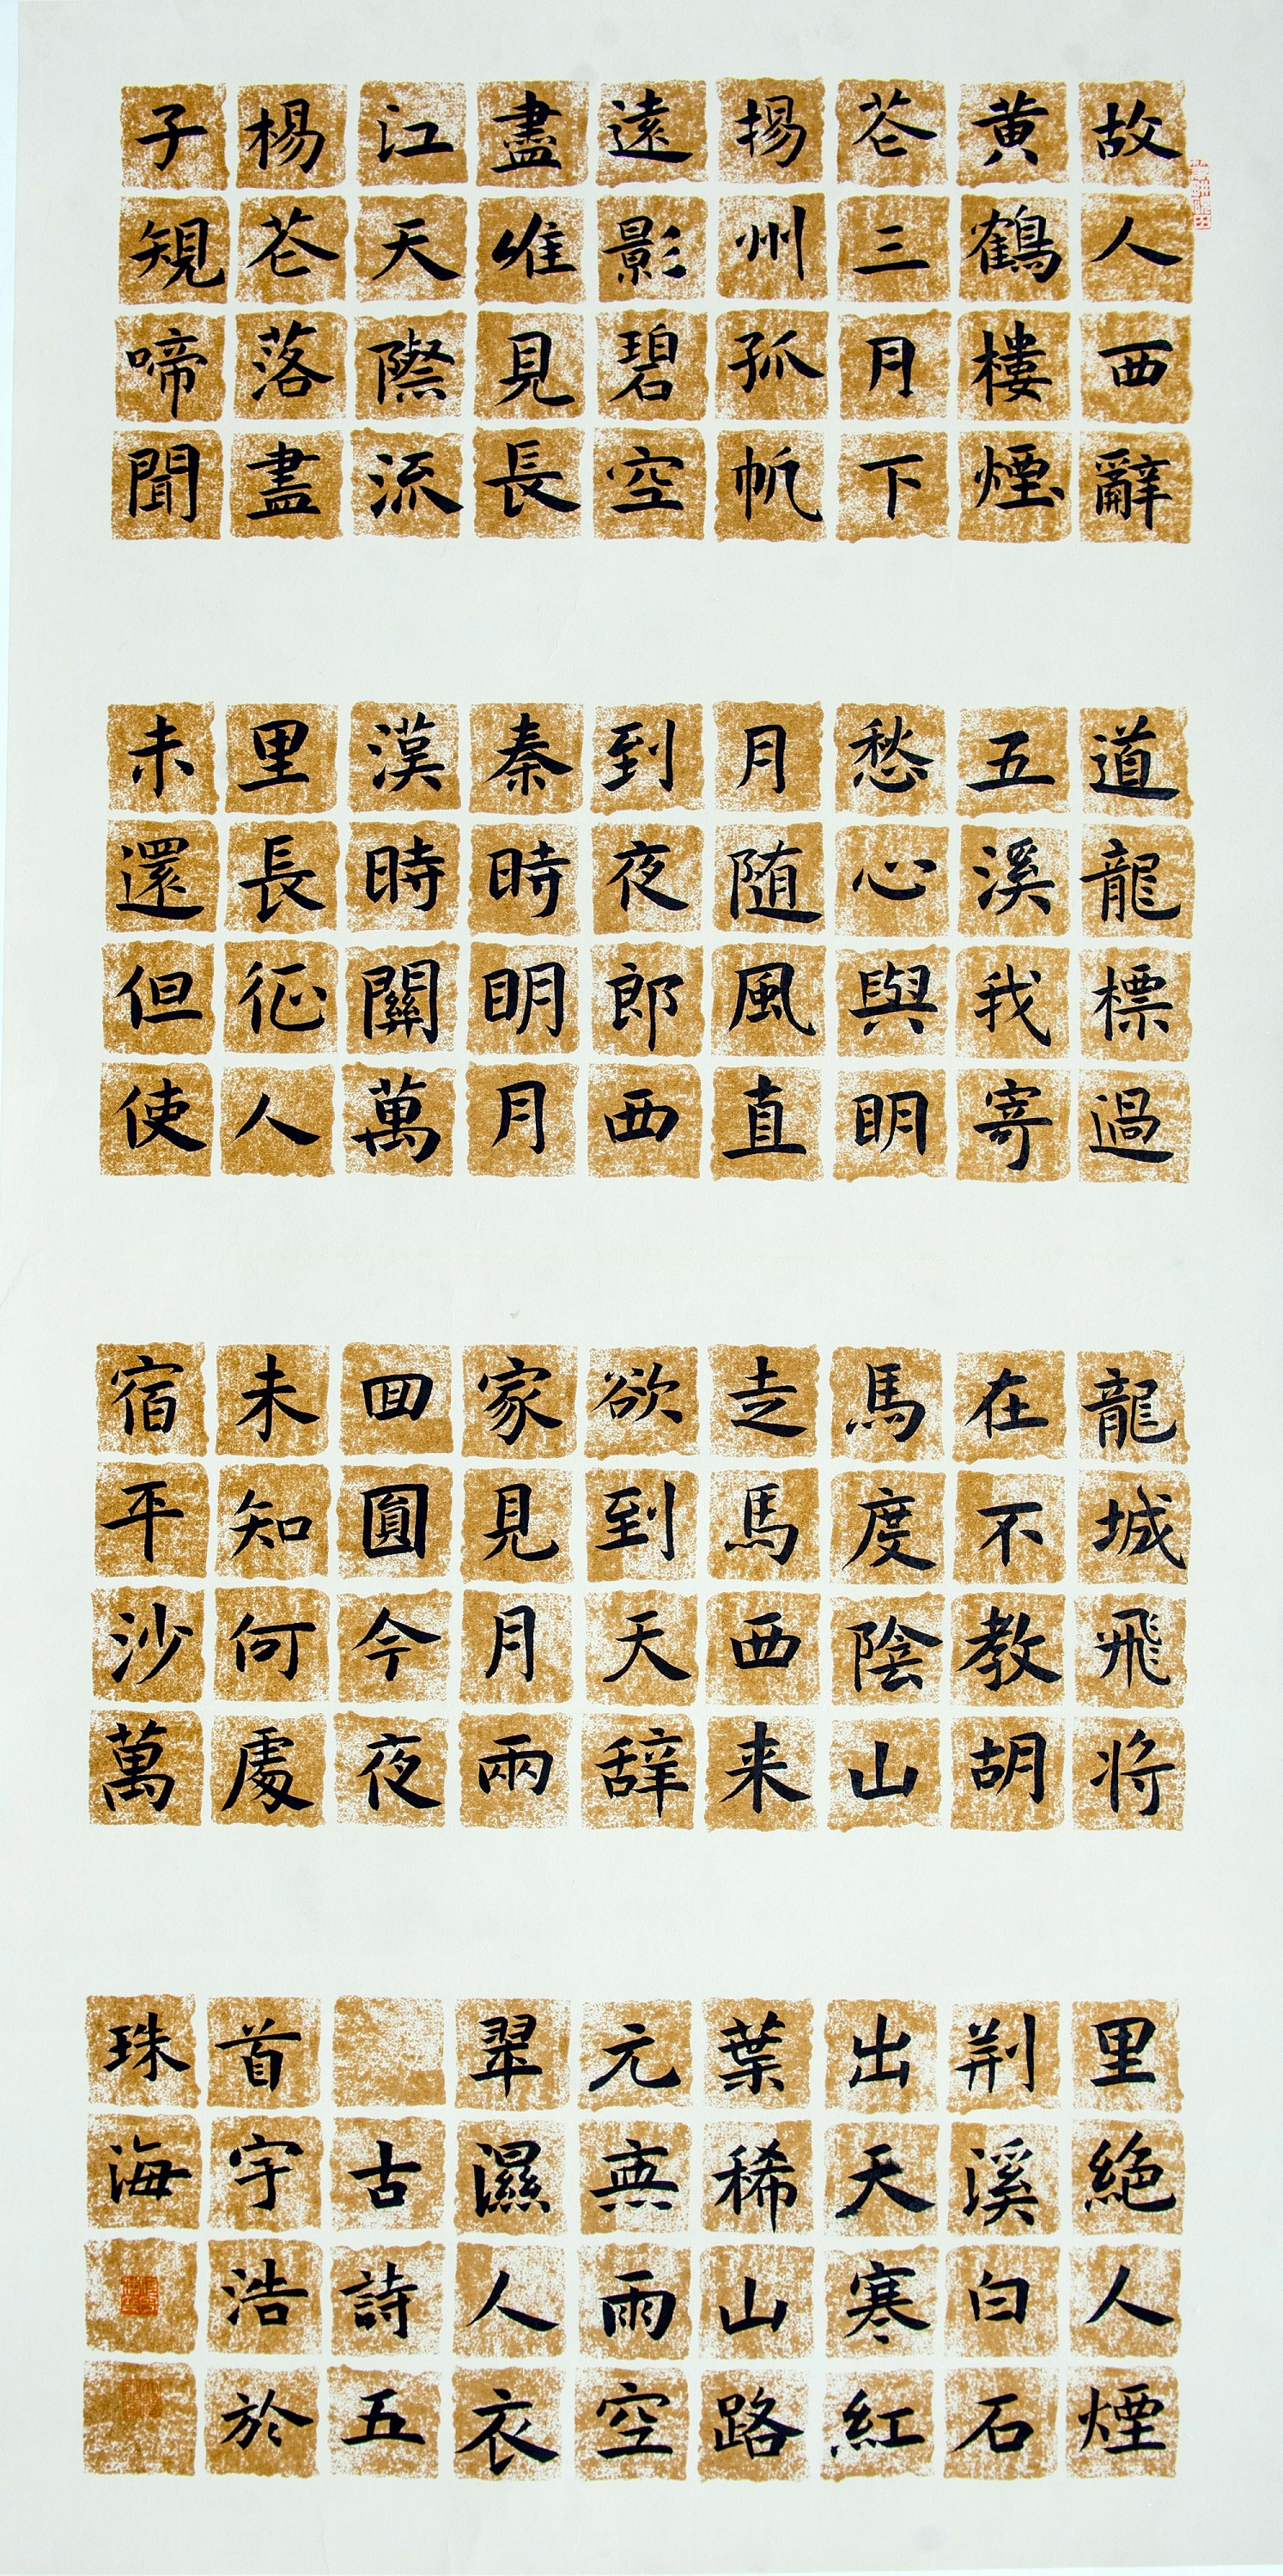 故人西辭
黄鶴樓煙
花三月下
揚州孤帆
遠影碧空
盡唯見長
江天際流
楊花落盡
子規啼聞
道龍標過
五溪我寄
愁心與明
月随風直
到夜郎西
秦時明月
漢時關萬
里長征人
未還但使
龍城飛将
在不教胡
馬度陰山
走馬西来
欲到天辞
家見月兩
回圓今夜
未知何處
宿平沙萬
里絶人煙
荆溪白石
出天寒紅
葉稀山路
元無雨空
翠濕人衣
古詩五
首宇浩於
珠海